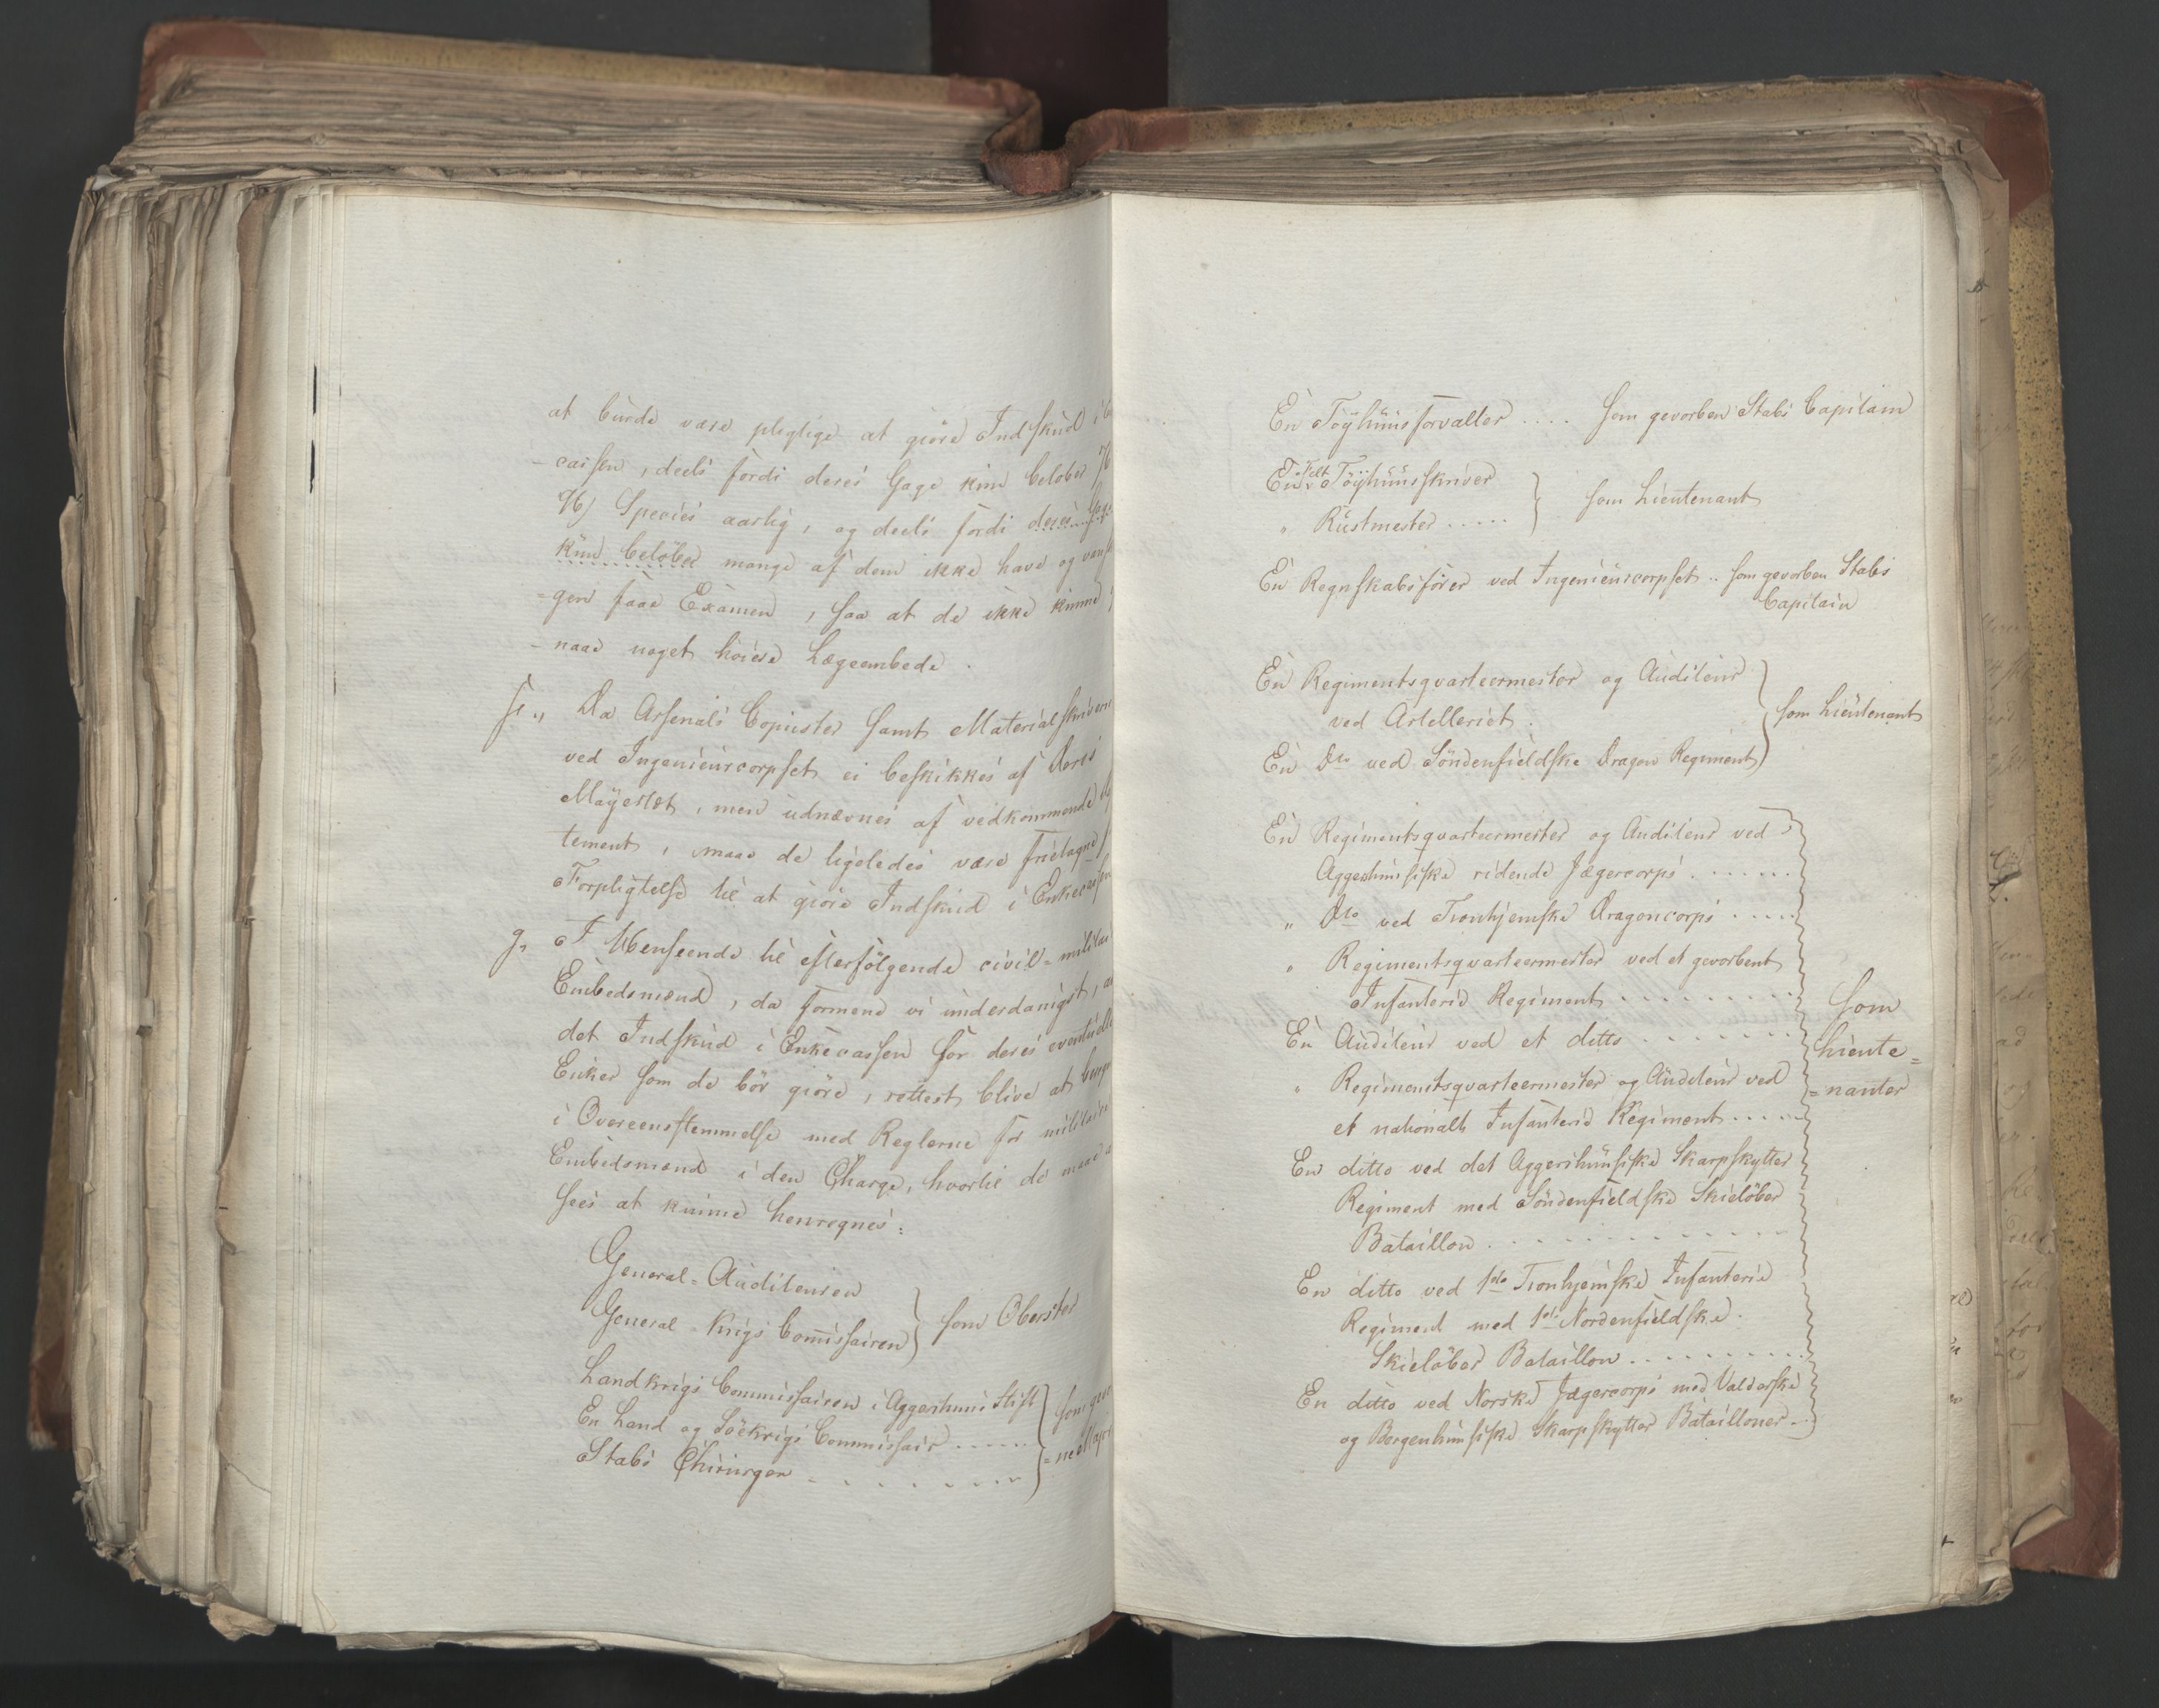 at burde være pligtige at giøre Indskud i
-cassen, deels fordi deres Gage kun beløber
96) Species aarlig, og deels fordi deres Gage
kun beløber mange af dem ikke have og
-gen faae Examen, saa at de ikke kunne
-naae noget høiere Lægeembede.
f., Da Arsenals Copiister samt Materialskriverne
ved Ingenieurcorpset ei beskikkes af Deres
Mayestæt, men udnævnes af vedkommende
tement, maae de ligeledes være fritagne
Forpligtelse til at giøre Indskud i Enkecassen
g, I Henseende til efterfølgende civil-militaire
Embedsmænd, da formene vi underdanigst,
det Indskud i Enkecassen for deres eventuelle
Enker som de bør giøre, rettest blive at
i Overeensstemmelse med Reglerne for militaire
Embedsmænd i den Charge, hvortil de maae
sees at kunne henregnes:
General-Auditeuren
General-Krigs Commissairen } som Oberster
Landkrigs Commissairen i Aggershuus Stift
En Land og Søekrigs Commissair .....
Stabs Chirurger - . . . . . . .
En Tøyhuusforvalter .... som gevorben Stabs Capitain
En Felt Tøyhuusskriver
" Rustmester ..... } som Lieutenant
En Regnskabsfører ved Ingenieurcorpset .. som gevorben Stabs
Capitain
En Regimentsqvarteermester og Auditeur
ved Artilleriet.
} som Lieutenant
En Dto ved Søndenfieldske Dragon Regiment
En Regimentsqvarteermester og Auditeur ved
Aggershuusiske ridende Jægercorps ......
" Dto ved Tronhjemske Dragoncorps .....
" Regimentsqvarteermester ved et gevorbent
Infanterie Regiment .........
En Auditeur ved et ditto .......
" Regimentsqvarteermester og Auditeur ved
et nationalt Infanterie Regiment .....
som
Lieute=
=nanter
En ditto ved det Aggershuusiske Skarpskytter
Regiment med Søndenfieldske Skieløber
Bataillon .............
En ditto ved 1ste Tronhjemske Infanterie
Regiment med 1ste Nordenfieldske
Skieløber Bataillon ..........
En ditto ved Norske Jægercorps med Valderske
og Bergenhuusiske Skarpskytter Batailloner ..